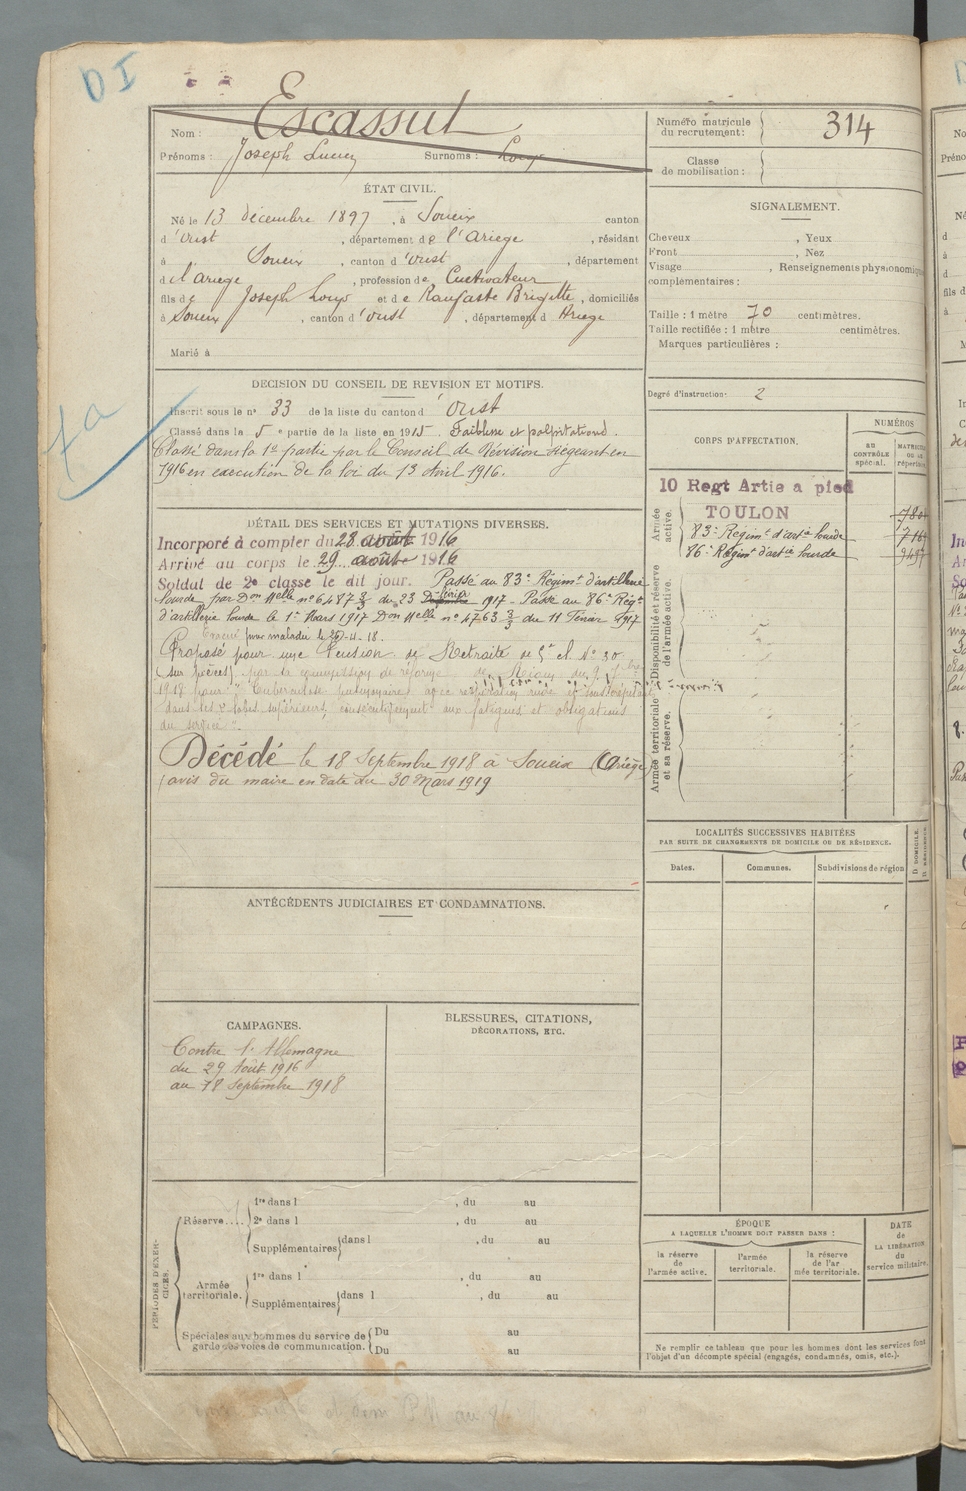 D I
Nom : Escassut
Prénoms : Joseph Lucien Surnoms : Louzo
Numéro matricule du recrutement : 314
Classe de mobilisation :
ÉTAT CIVIL.
Né le 13 décembre 1897, à Soueix canton
d'Oust, département de l'Ariège, résidant
à Soueix, canton d'Oust, département
de l'Ariège, profession de Cultivateur
fils de Joseph Louzo et de Raufaste Brigitte, domiciliés
à Soueix, canton d'Oust, département d Ariège
Marié à
SIGNALEMENT.
Cheveux , Yeux
Front , Nez
Visage , Renseignements physionomique
complémentaires :
Taille : 1 mètre 70 centimètres.
Taille rectifiée : 1 mètre centimètres.
Marques particulières :
Degré d'instruction : 2
DÉCISION DU CONSEIL DE RÉVISION ET MOTIFS.
Inscrit sous le n° 33 de la liste du canton d'Oust
Classé dans la 5e partie de la liste en 1915. Faiblesse et palpitations.
Classé dans la 1e partie par le Conseil de Révision siégeant en
1916 en exécution de la loi du 13 Avril 1916.
CORPS D'AFFECTATION.
NUMÉROS
AU CONTRÔLE spécial.
MATRICULE OU AU répertoire
Armée active.
10 Regt Artie a pied
TOULON
83e Régimt d'artie lourde
86e Régimt d'artie lourde
Disponibilité et réserve de l'armée active.
Armée territoriale et sa réserve.
DÉTAIL DES SERVICES ET MUTATIONS DIVERSES.
Incorporé à compter du 28 août 1916
Arrivé au corps le 29 août 1916
Soldat de 2e classe le dit jour. Passé au 83e Régimt d'artillerie
lourde par Don Melle n° 6487 3/3 du 23 1917 - Passé au 86e Régt
d'artillerie lourde le 1er Mars 1917 Don Melle n° 4763 3/3 du 11 Févier 1917
pour maladie le -4-18.
Proposé pour une Pension de Retraite de 5e cl. N° 30
(sur pièces) par la commission de réforme
1918 pour : "Tuberculose pulmonaire avec respiration rude et
dans les 2 lobes supérieurs, consécutivement aux fatigues et obligations
du service".
Décédé le 18 Septembre 1918 à Soueix (Ariège)
(avis du maire en date du 30 Mars 1919
LOCALITÉS SUCCESSIVES HABITÉES
PAR SUITE DE CHANGEMENTS DE DOMICILE OU DE RÉSIDENCE.
Dates. Communes. Subdivisions de région
D DOMICILE. R RÉSIDENCE.
ANTÉCÉDENTS JUDICIAIRES ET CONDAMNATIONS.
CAMPAGNES.
Contre l'Allemagne
du 29 Août 1916
au 18 Septembre 1918
BLESSURES, CITATIONS,
DÉCORATIONS, ETC.
PÉRIODES D'EXERCICES.
Réserve....
1re dans l , du au
2e dans l , du au
Supplémentaires dans l , du au
Armée territoriale.
1re dans l , du au
Supplémentaires dans l , du au
Spéciales aux hommes du service de garde des voies de communication.
Du au
Du au
ÉPOQUE
A LAQUELLE L'HOMME DOIT PASSER DANS :
la réserve de l'armée active.
l'armée territoriale.
la réserve de l'ar mée territoriale.
DATE de LA LIBÉRATION du service militaire.
Ne remplir ce tableau que pour les hommes dont les services font
l'objet d'un décompte spécial (engagés, condamnés, omis, etc.).